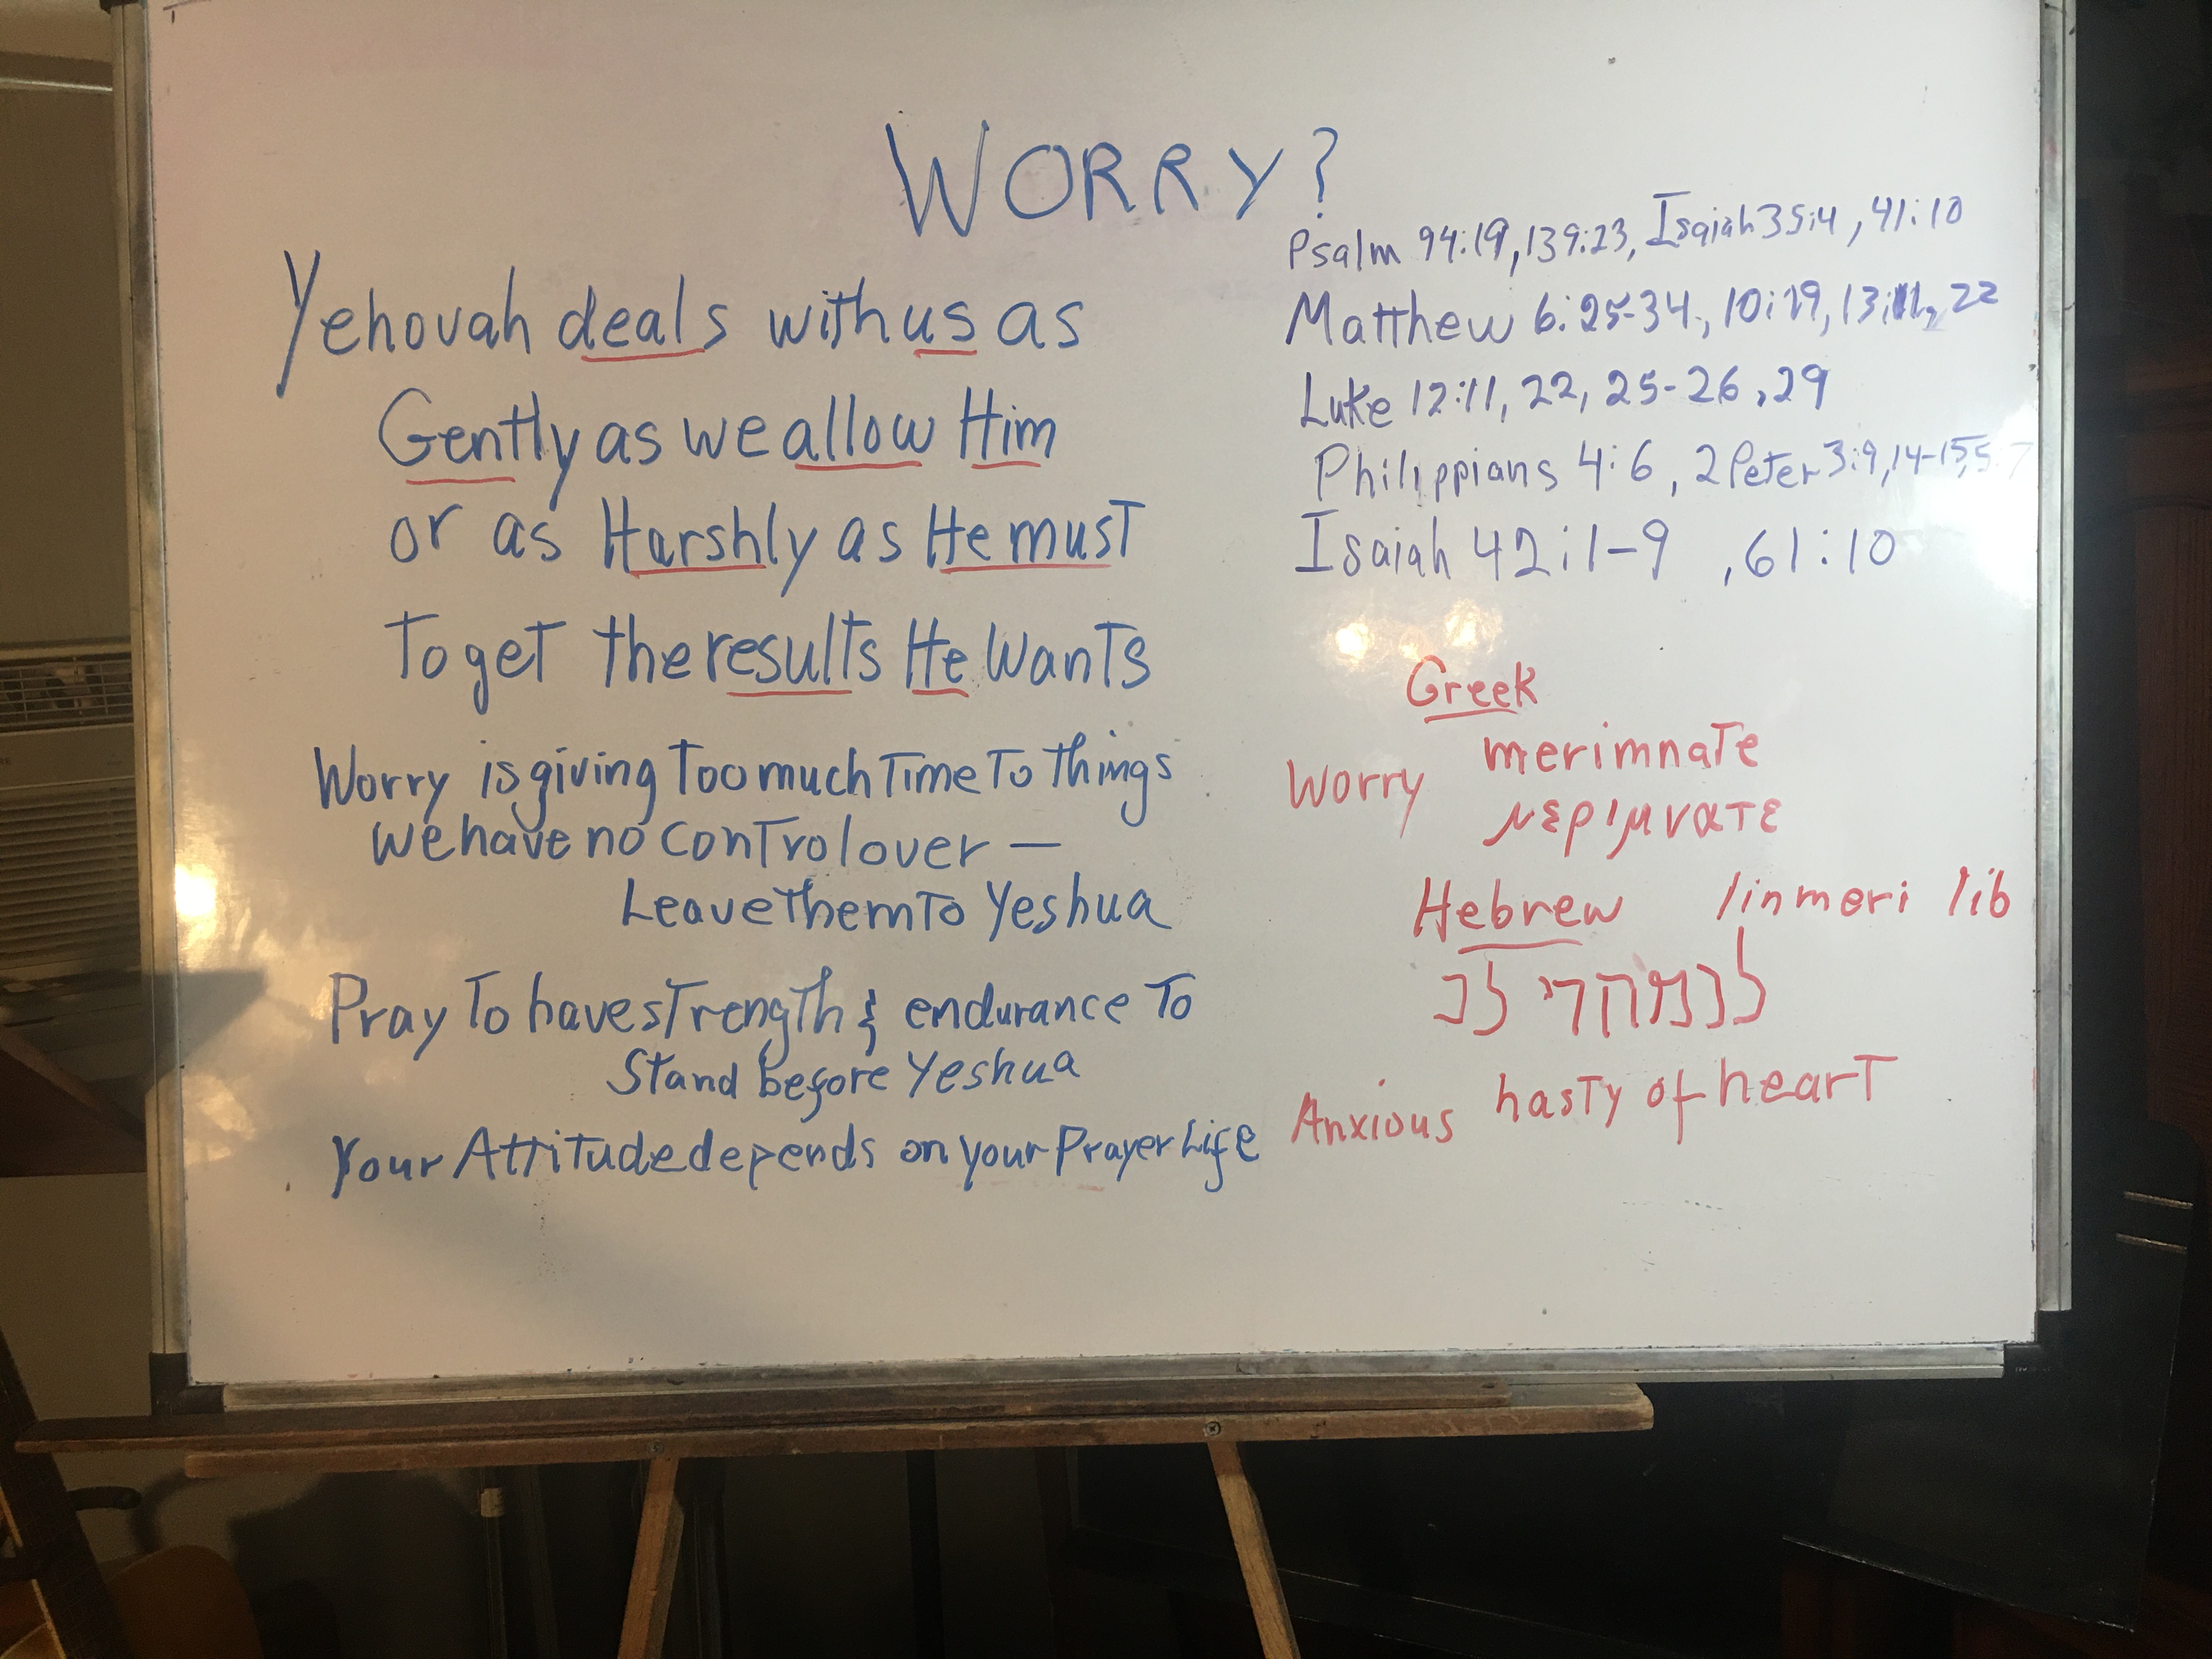 WORRY?
Yehovah deals with us as
Gently as we allow Him
or as Harshly as He must
To get the results He Wants
Worry is giving Too much Time To things
we have no control over —
Leave them To Yeshua
Pray To have strength & endurance To
Stand before Yeshua
Your Attitude depends on your Prayer Life
Psalm 94:19, 139:23, Isaiah 35:4, 41:10
Matthew 6:25-34, 10:19, 13: 22
Luke 12:11, 22, 25-26, 29
Philippians 4:6, 2 Peter 3:9, 14-15,
Isaiah 42:1-9, 61:10
Greek
merimnate
Worry
μεριμνατε
Hebrew linmeri lib
לנמהרי לב
Anxious hasty of heart